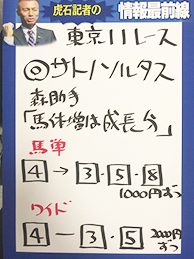 虎石記者の
情報最前線
東京11レース
◎サトノソルタス
森助手
「馬体増は成長分」
馬単
4→3・5・8
1000円ずつ
ワイド
4－3・5 2000円
ずつ